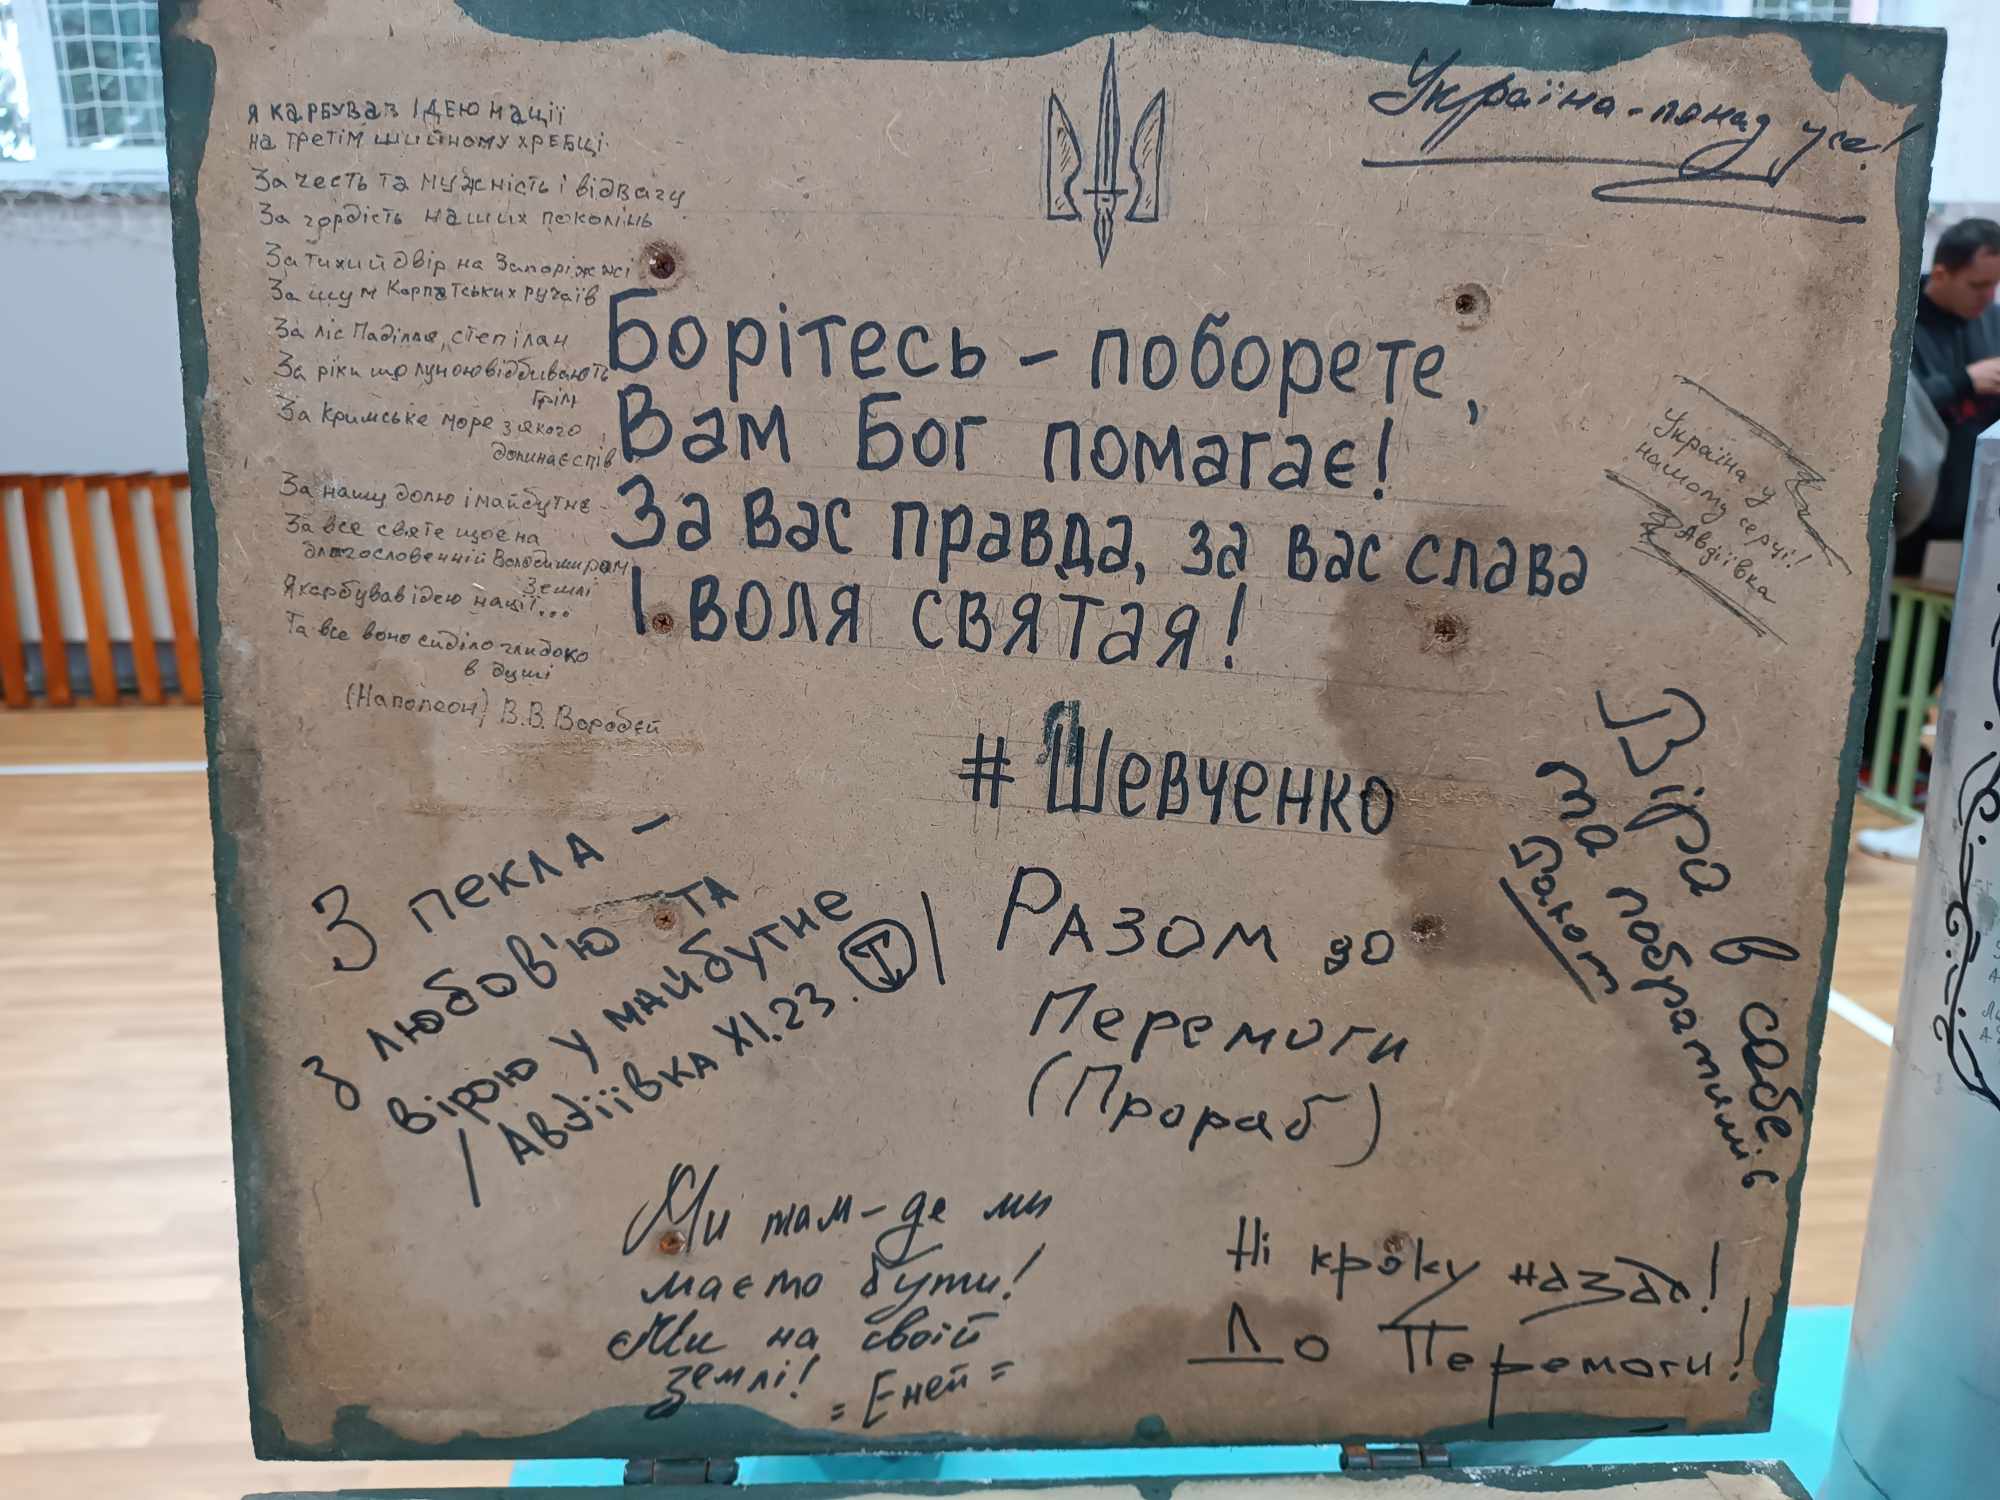 Я КАРБУВАВ ІДЕЮ НАЦІЇ
на третім шийному хребці.
За честь та мужність і відвагу
За гордість наших поколінь
За тихий двір на Запоріжжі
За шум Карпатських ручаїв
За ліс Паділля, степ і лан
За ріки що луною відбивають
грім
За Кримське море з якого
долинає спів
За нашу долю і майбутнє
За все святе що є на
благословенній Володимиром
Землі
Я карбував ідею нації...
Та все воно сиділо глибоко
в душі
(Наполеон) В.В. Воробєй
Україна - понад усе!
Борітесь - поборете,
Вам Бог помагає!
За вас правда, за вас слава
І воля святая!
# Шевченко
Україна у
нашому серці!
Авдіївка
Віра в себе
та побратимів
З пекла -
з любов'ю та
вірою у майбутнє
/ Авдіївка XI.23. Т /
Разом до
Перемоги
(Прораб)
Ми там - де ми
маємо бути!
Ми на своїй
землі!
= Еней =
Ні кроку назад!
До Перемоги!